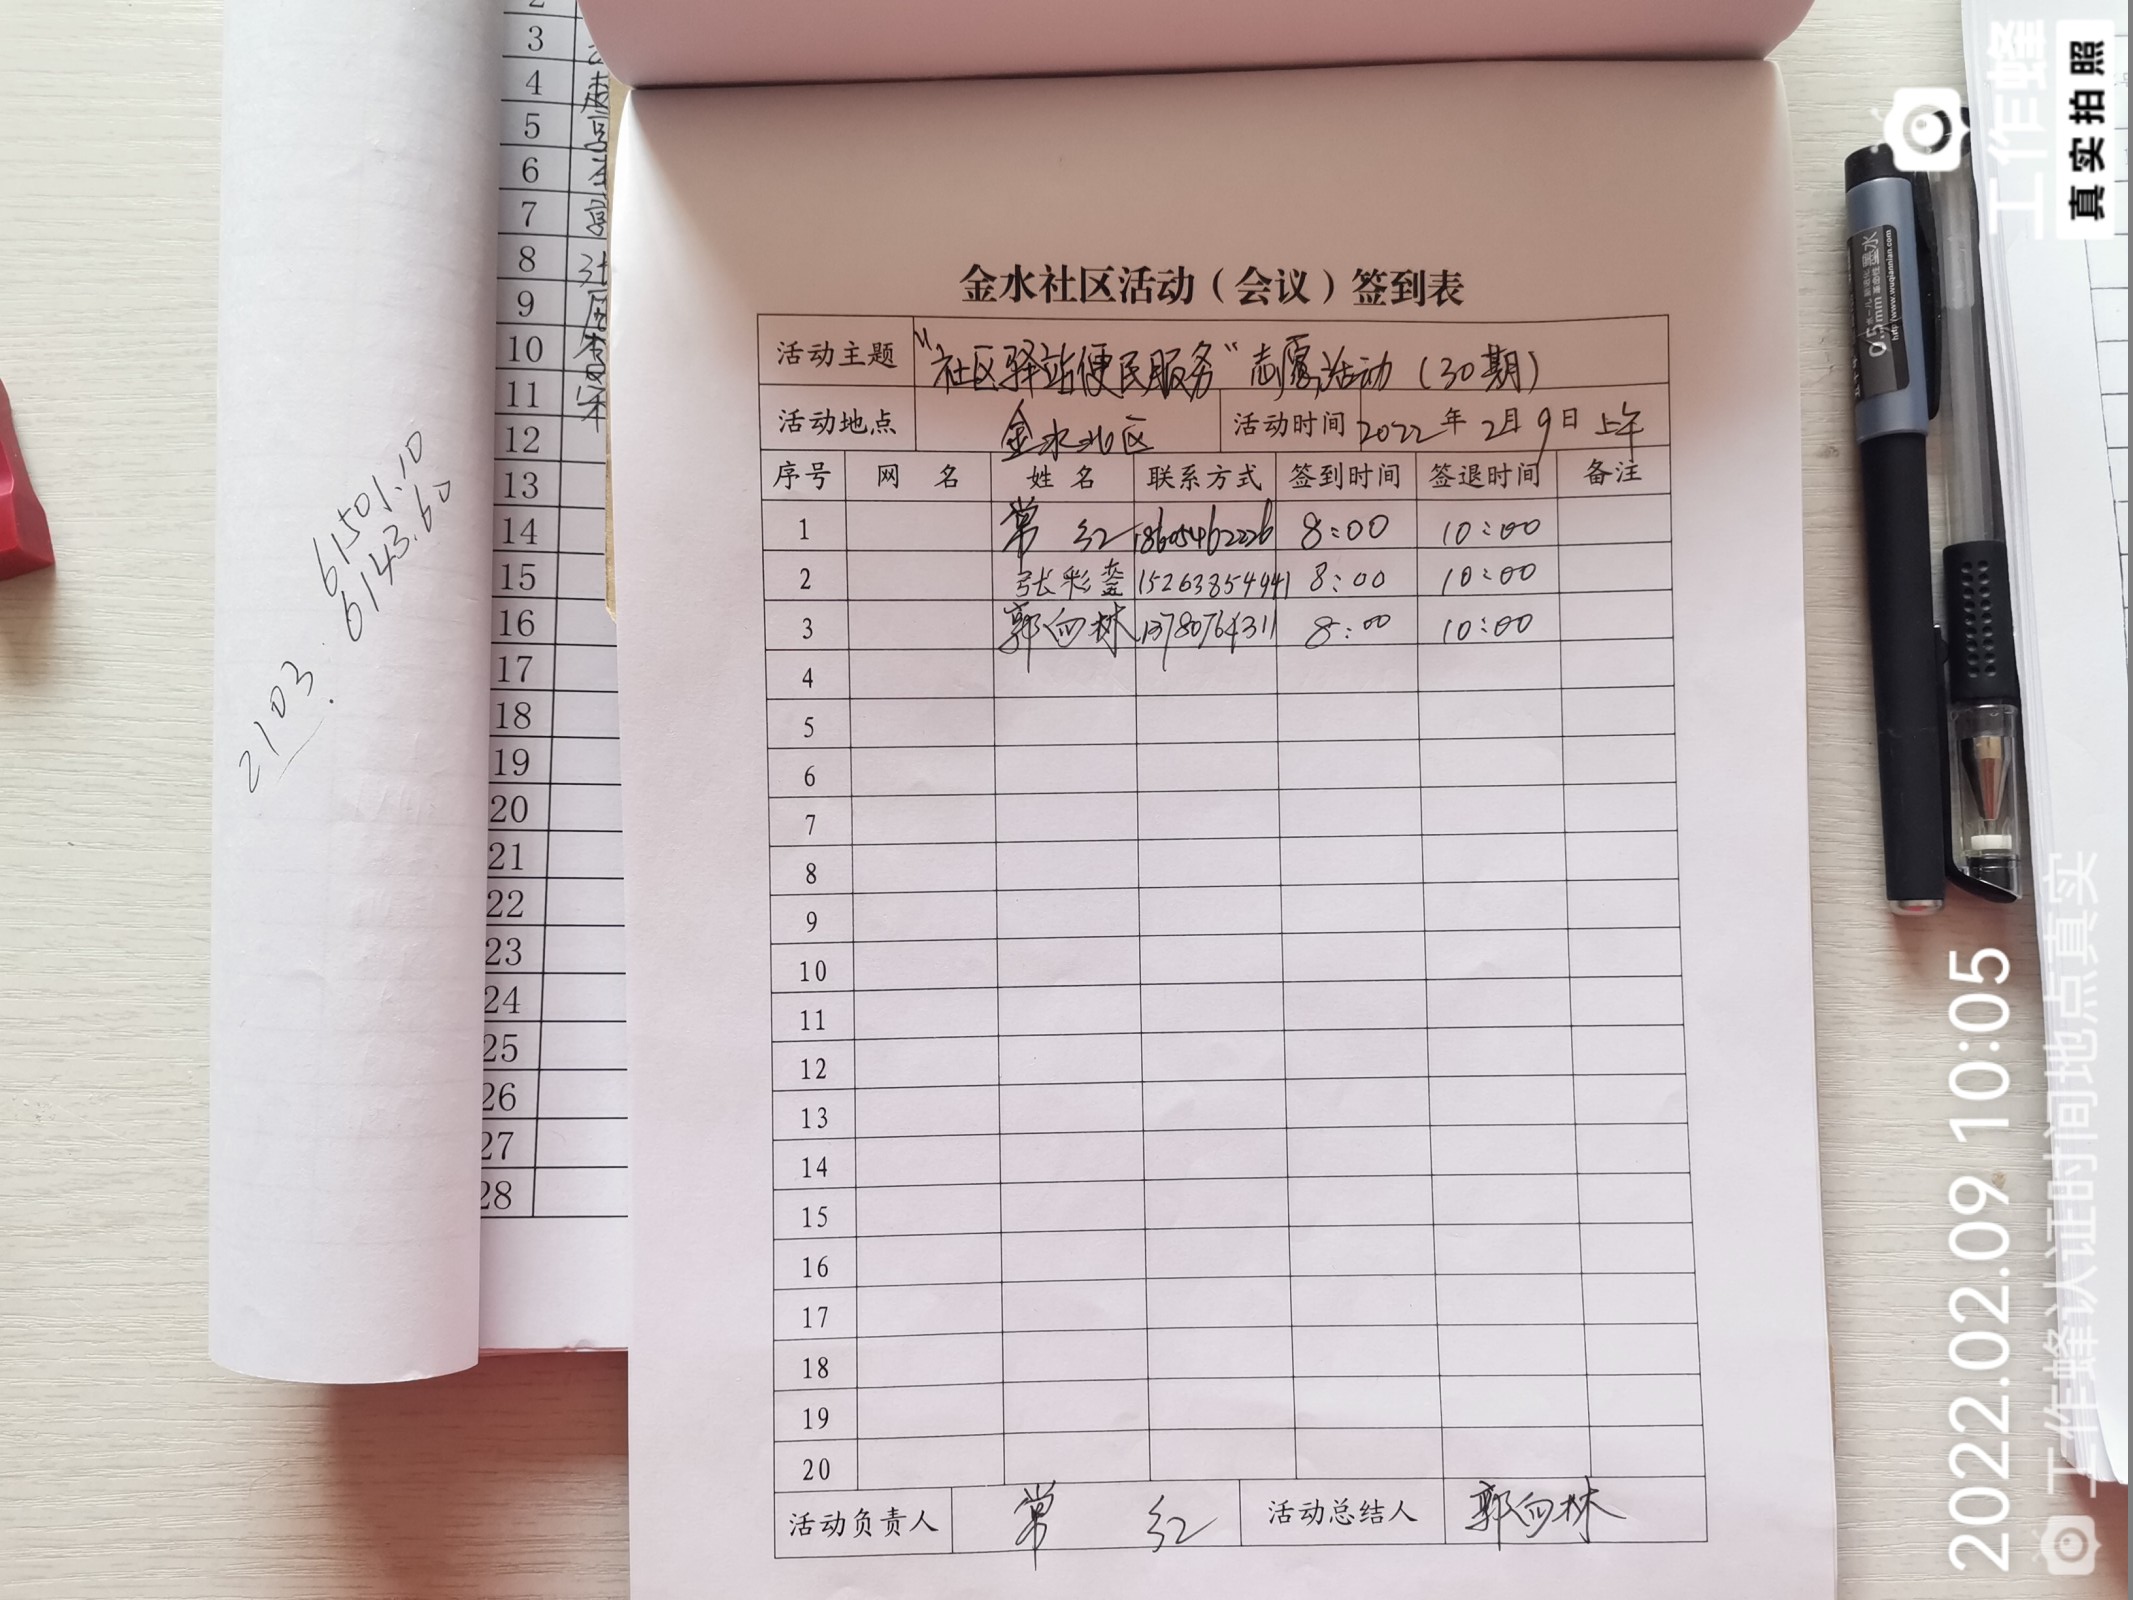 金水社区活动（会议）签到表
活动主题 “社区驿站便民服务”志愿活动（30期）
活动地点 金水北区 活动时间 2022年2月9日上午
序号 网 名 姓 名 联系方式 签到时间 签退时间 备注
1 常 红 18605462226 8:00 10:00
2 张彩銮 15263854941 8:00 10:00
3 郭向林 13780764311 8:00 10:00
4
5
6
7
8
9
10
11
12
13
14
15
16
17
18
19
20
活动负责人 常 红 活动总结人 郭向林
3
4
5
6
7
8
9
10
11
12
13
14
15
16
17
18
19
20
21
22
23
24
25
26
27
28
61501.10
6143.60
2103.
0.5mm
墨水
http://www.wuqiannian.com
工作蜂
真实拍照
2022.02.09 10:05
工作蜂认证时间地点真实